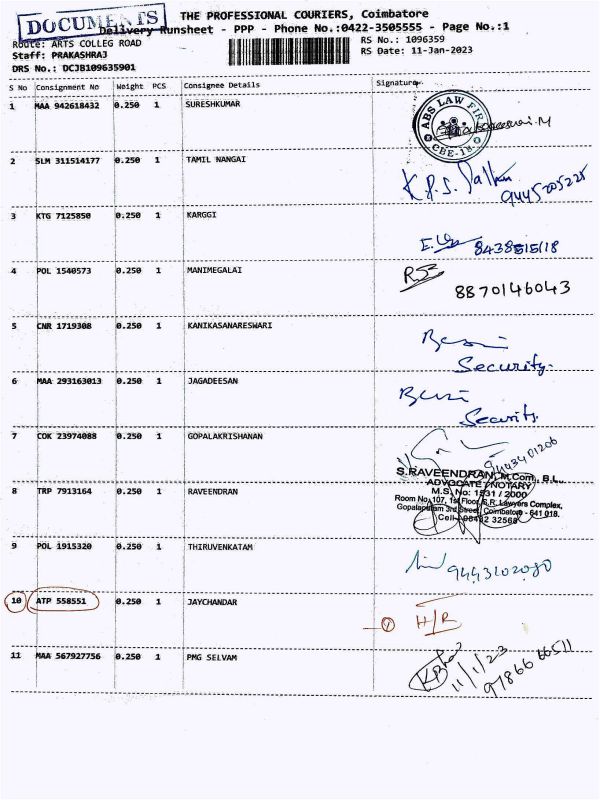 DOCUMENTS
THE PROFESSIONAL COURIERS, Coimbatore
Delivery Runsheet - PPP - Phone No.:0422-3505555 - Page No.:1
Route: ARTS COLLEG ROAD
RS No.: 1096359
Staff: PRAKASHRAJ
RS Date: 11-Jan-2023
DRS No.: DCJB109635901
S No Consignment No Weight PCS Consignee Details Signature
1 MAA 942618432 0.250 1 SURESHKUMAR
ABS LAW FIRM
CBE-18
2 SLM 311514177 0.250 1 TAMIL NANGAI
K.P.S.
9445205225
3 KTG 7125850 0.250 1 KARGGI
8438515118
4 POL 1540573 0.250 1 MANIMEGALAI
8870146043
5 CNR 1719308 0.250 1 KANIKASANARESWARI
Security.
6 MAA 293163013 0.250 1 JAGADEESAN
Security.
7 COK 23974088 0.250 1 GOPALAKRISHANAN
9443401206
S.RAVEENDRAN, M.Com., B.L.,
ADVOCATE / NOTARY
M.S. No: 1531 / 2000
8 TRP 7913164 0.250 1 RAVEENDRAN
Room No. 107, 1st Floor, S.R. Lawyers Complex,
Gopalapuram 3rd Street, Coimbatore - 641 018.
Cell : 98432 32568
9 POL 1915320 0.250 1 THIRUVENKATAM
9443202080
10 ATP 558551 0.250 1 JAYCHANDAR
H/R
11 MAA 567927756 0.250 1 PMG SELVAM
11/1/23
9786666511